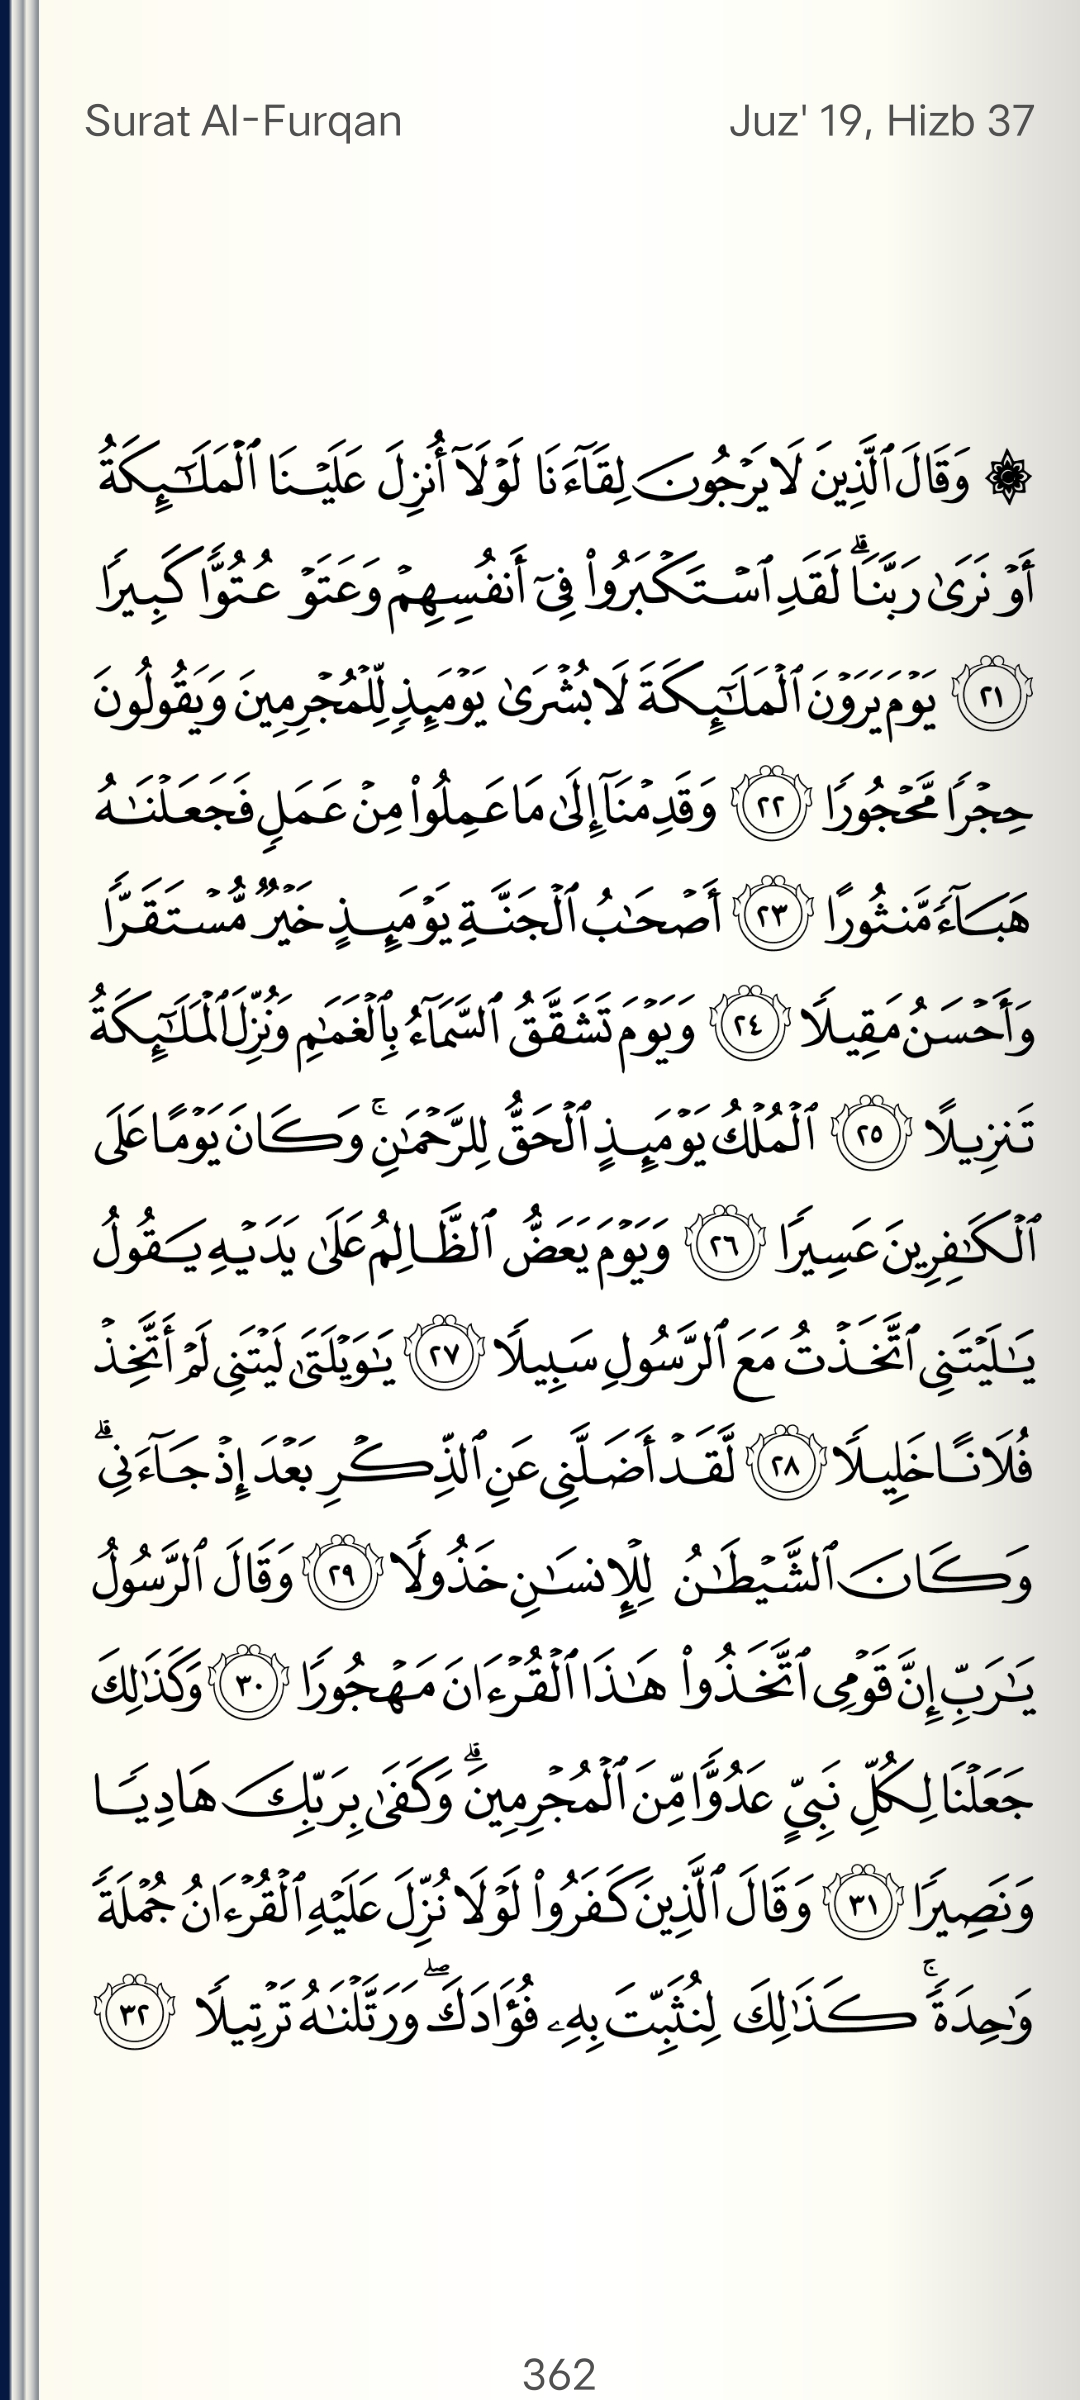 Surat Al-Furqan
Juz' 19, Hizb 37
۞ وَقَالَ ٱلَّذِينَ لَا يَرۡجُونَ لِقَآءَنَا لَوۡلَآ أُنزِلَ عَلَيۡنَا ٱلۡمَلَٰٓئِكَةُ
أَوۡ نَرَىٰ رَبَّنَاۗ لَقَدِ ٱسۡتَكۡبَرُواْ فِيٓ أَنفُسِهِمۡ وَعَتَوۡ عُتُوّٗا كَبِيرٗا
٢١ يَوۡمَ يَرَوۡنَ ٱلۡمَلَٰٓئِكَةَ لَا بُشۡرَىٰ يَوۡمَئِذٖ لِّلۡمُجۡرِمِينَ وَيَقُولُونَ
حِجۡرٗا مَّحۡجُورٗا ٢٢ وَقَدِمۡنَآ إِلَىٰ مَا عَمِلُواْ مِنۡ عَمَلٖ فَجَعَلۡنَٰهُ
هَبَآءٗ مَّنثُورًا ٢٣ أَصۡحَٰبُ ٱلۡجَنَّةِ يَوۡمَئِذٍ خَيۡرٞ مُّسۡتَقَرّٗا
وَأَحۡسَنُ مَقِيلٗا ٢٤ وَيَوۡمَ تَشَقَّقُ ٱلسَّمَآءُ بِٱلۡغَمَٰمِ وَنُزِّلَ ٱلۡمَلَٰٓئِكَةُ
تَنزِيلًا ٢٥ ٱلۡمُلۡكُ يَوۡمَئِذٍ ٱلۡحَقُّ لِلرَّحۡمَٰنِۚ وَكَانَ يَوۡمًا عَلَى
ٱلۡكَٰفِرِينَ عَسِيرٗا ٢٦ وَيَوۡمَ يَعَضُّ ٱلظَّالِمُ عَلَىٰ يَدَيۡهِ يَقُولُ
يَٰلَيۡتَنِي ٱتَّخَذۡتُ مَعَ ٱلرَّسُولِ سَبِيلٗا ٢٧ يَٰوَيۡلَتَىٰ لَيۡتَنِي لَمۡ أَتَّخِذۡ
فُلَانًا خَلِيلٗا ٢٨ لَّقَدۡ أَضَلَّنِي عَنِ ٱلذِّكۡرِ بَعۡدَ إِذۡ جَآءَنِيۗ
وَكَانَ ٱلشَّيۡطَٰنُ لِلۡإِنسَٰنِ خَذُولٗا ٢٩ وَقَالَ ٱلرَّسُولُ
يَٰرَبِّ إِنَّ قَوۡمِي ٱتَّخَذُواْ هَٰذَا ٱلۡقُرۡءَانَ مَهۡجُورٗا ٣٠ وَكَذَٰلِكَ
جَعَلۡنَا لِكُلِّ نَبِيٍّ عَدُوّٗا مِّنَ ٱلۡمُجۡرِمِينَۗ وَكَفَىٰ بِرَبِّكَ هَادِيٗا
وَنَصِيرٗا ٣١ وَقَالَ ٱلَّذِينَ كَفَرُواْ لَوۡلَا نُزِّلَ عَلَيۡهِ ٱلۡقُرۡءَانُ جُمۡلَةٗ
وَٰحِدَةٗۚ كَذَٰلِكَ لِنُثَبِّتَ بِهِۦ فُؤَادَكَۖ وَرَتَّلۡنَٰهُ تَرۡتِيلٗا ٣٢
362